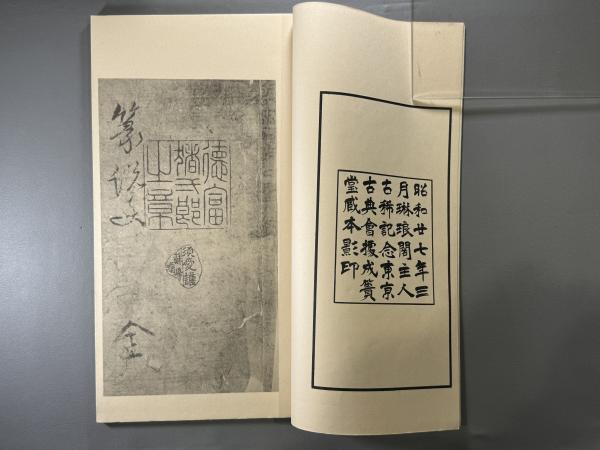 昭和廿七年三
月琳琅閣主人
古稀記念東京
古典會據成簣
堂藏本影印
德富
猪弌郎
之章
須愛護
蘇峰囑
篆
全